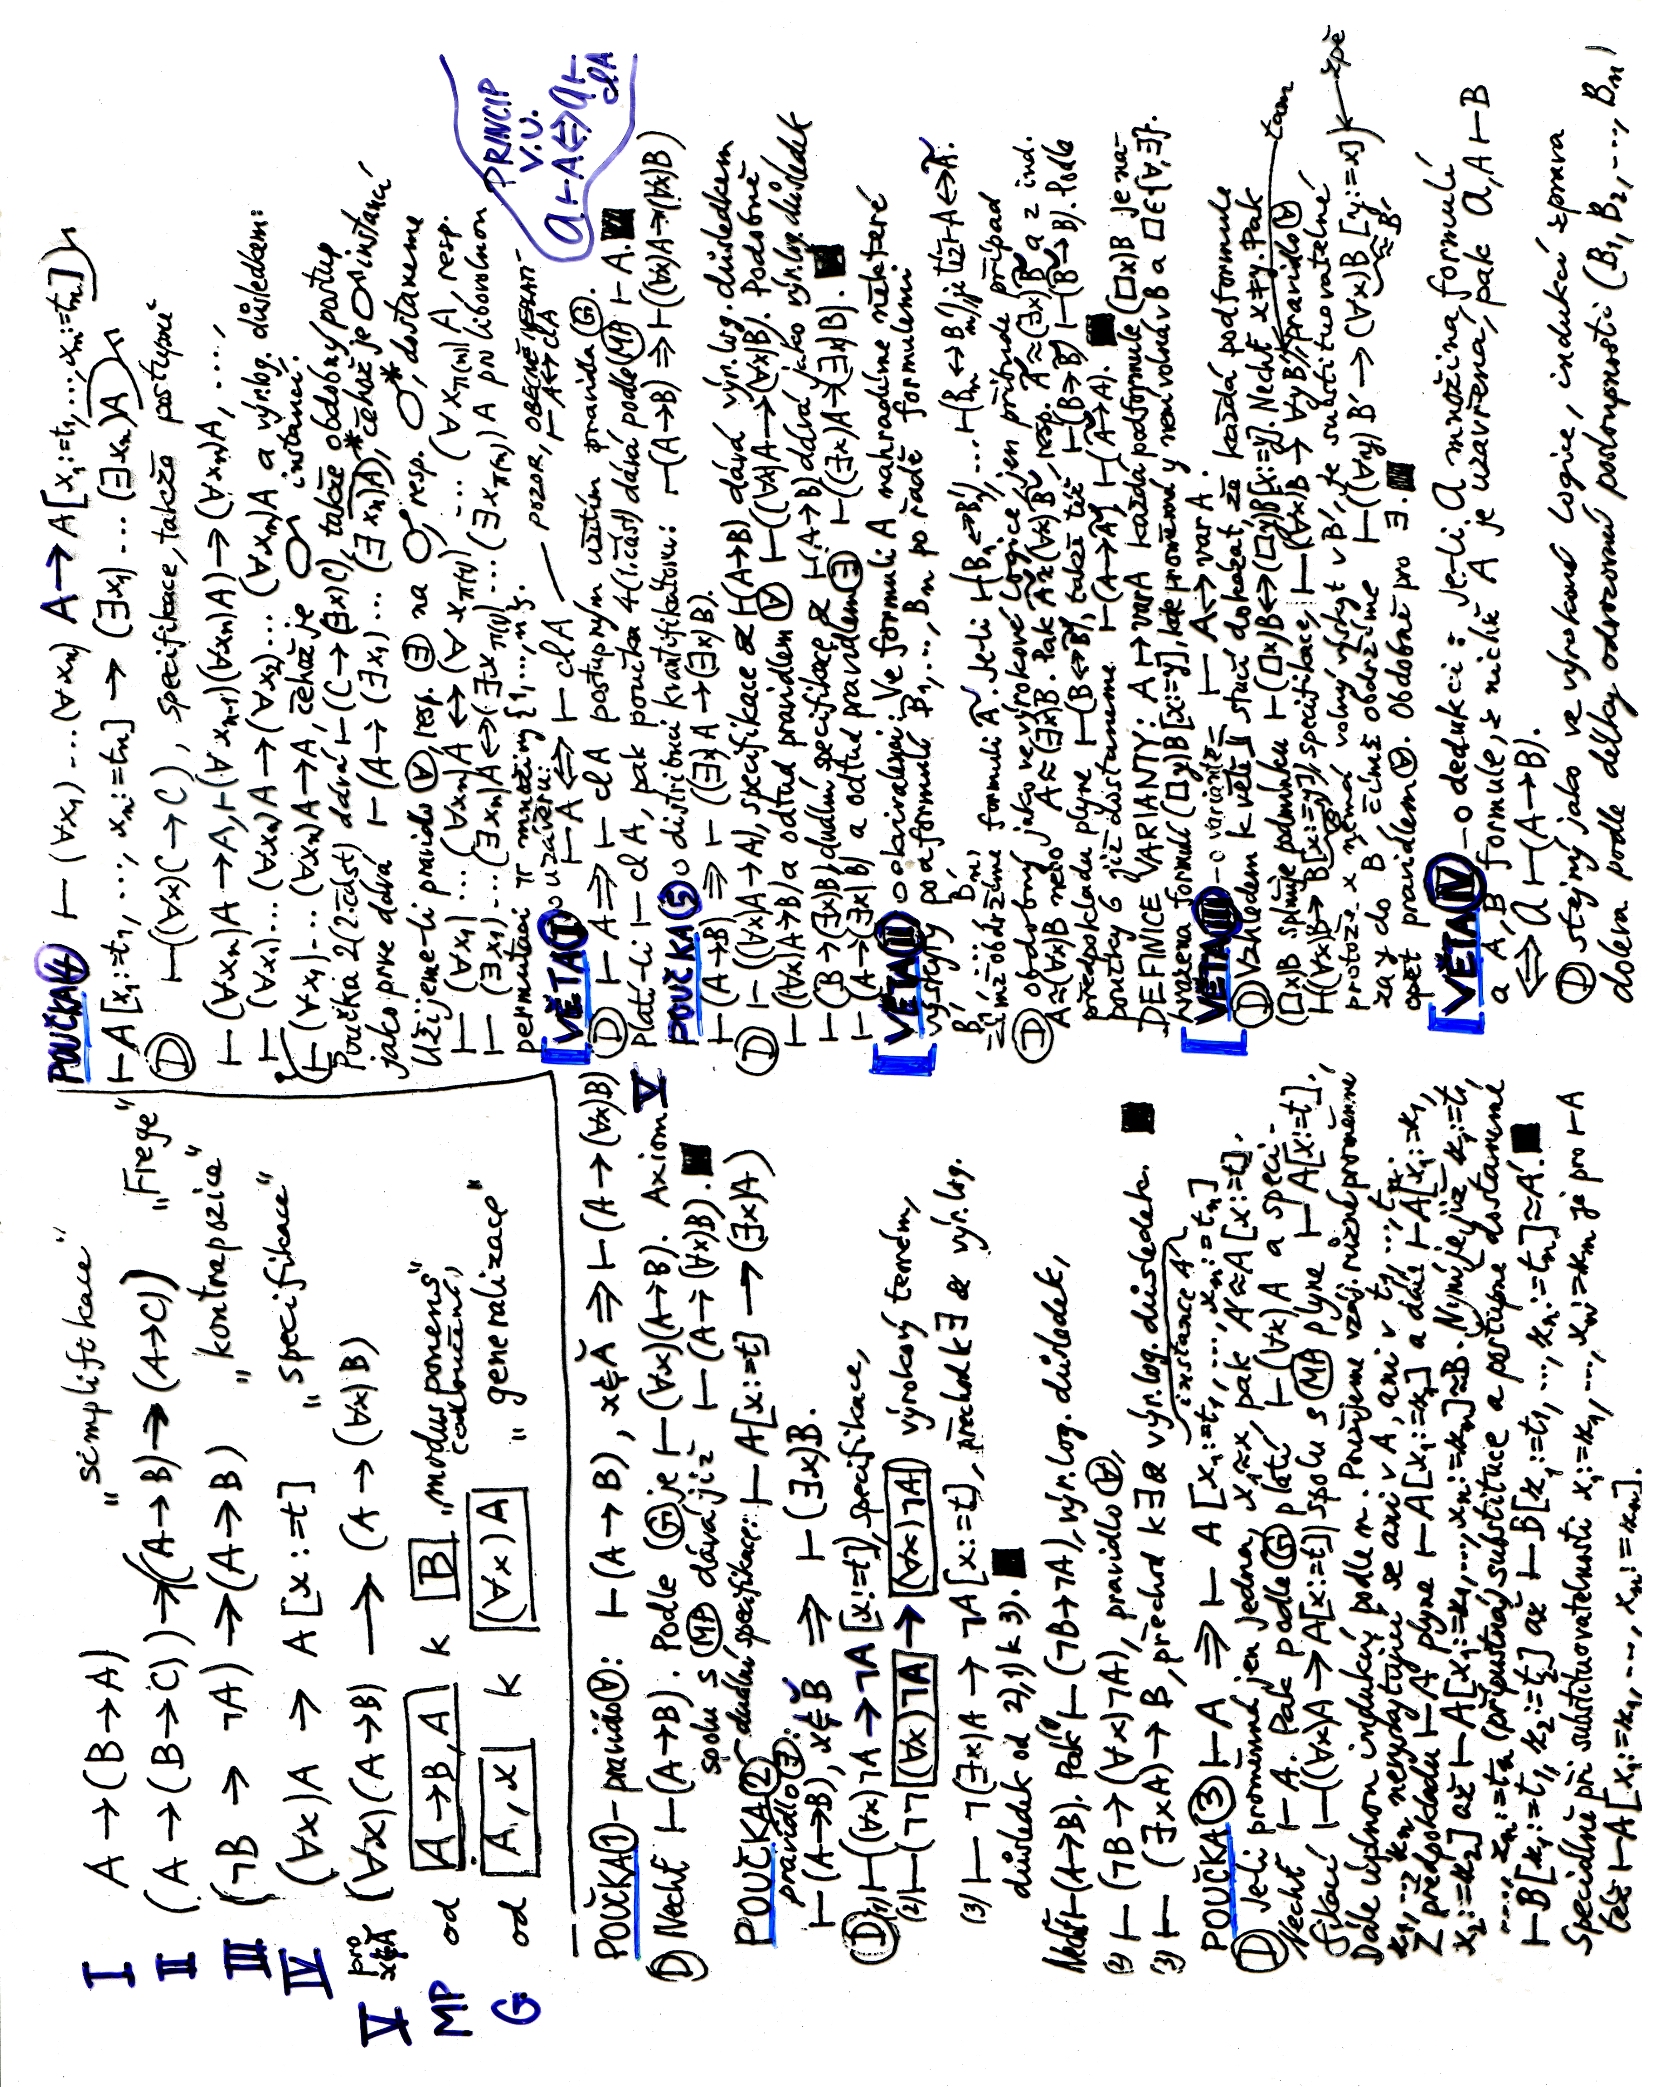 I A → (B → A) "simplifikace"
II (A → (B → C)) → ((A → B) → (A → C)) "Frege"
III (¬B → ¬A) → (A → B) "kontrapozice"
IV (∀x)A → A[x:=t] "specifikace"
V pro x∉Ǎ (∀x)(A → B) → (A → (∀x)B)
MP od A → B, A k B "modus ponens"
G od A, x k (∀x)A "generalizace"
POUČKA 1 - pravidlo ∀: ⊢(A → B), x∉Ǎ ⇒ ⊢(A → (∀x)B)
D Nechť ⊢(A→B). Podle G je ⊢(∀x)(A→B). Axiom V
spolu s MP dává již ⊢(A → (∀x)B). ■
POUČKA 2 duální specifikace: ⊢ A[x:=t] → (∃x)A
pravidlo ∃:
⊢(A→B), x∉B̌ ⇒ ⊢(∃x)B.
D 1) ⊢((∀x)¬A → ¬A[x:=t]), specifikace,
(2) ⊢(¬¬(∀x)¬A → (∀x)¬A) výrokový teorém,
(3) ⊢ ¬(∃x)A → ¬A[x:=t], přechod k ∃ & výr.log.
důsledek od 2), 1) k 3). ■
Nechť ⊢(A→B). Pak ⊢(¬B→¬A), výr.log. důsledek,
(2) ⊢(¬B → (∀x)¬A), pravidlo ∀,
(3) ⊢ (∃xA) → B, přechod k ∃ & výr.log. důsledek. ■
instance A
POUČKA 3 ⊢A ⇒ ⊢ A[x₁:=t₁, ..., xₙ:=tₙ]
D Je-li proměnná jen jedna, x₁≈x, pak A'≈A[x:=t].
Nechť ⊢A. Pak podle G platí ⊢(∀x)A a speci-
fikací ⊢((∀x)A → A[x:=t]) spolu s MP plyne ⊢A[x:=t].
Dále úplnou indukcí podle n. Použijeme vzáj. různé proměnné
z₁, ..., zₙ nevyskytující se ani v A, ani v t₁, ..., tₙ.
Z předpokladu ⊢A plyne ⊢A[x₁:=z₁] a dále ⊢A[x₁:=z₁,
x₂:=z₂] až ⊢A[x₁:=z₁, ..., xₙ:=zₙ]≈B. Nyní je již z₁:=t₁,
..., zₙ:=tₙ přípustná substituce a postupně dostaneme
⊢B[z₁:=t₁, z₂:=t₂] až ⊢B[z₁:=t₁, ..., zₙ:=tₙ]≈A'. ■
Speciálně při substituovatelnosti x₁:=z₁, ..., xₙ:=zₙ je pro ⊢A
též ⊢A[x₁:=z₁, ..., xₙ:=zₙ].
POUČKA 4 ⊢ (∀x₁)...(∀xₙ) A → A[x₁:=t₁, ..., xₙ:=tₙ]
⊢A[x₁:=t₁, ..., xₙ:=tₙ] → (∃x₁)...(∃xₙ)A
D ⊢((∀x)C → C), specifikace, takže postupně
⊢(∀xₙ)A → A, ⊢(∀xₙ₋₁)(∀xₙ)A → (∀xₙ)A, ...,
⊢(∀x₁)...(∀xₙ)A → (∀x₂)...(∀xₙ)A a výr.log. důsledkem:
⊢(∀x₁)...(∀xₙ)A → A, čehož je instancí.
Poučka 2(2.část) dává ⊢(C → (∃x)C), takže obdobný postup
jako prve dává ⊢(A → (∃x₁)...(∃xₙ)A), čehož je instancí
Užijeme-li pravidlo ∀, resp. ∃ na , resp. *, dostaneme
⊢ (∀x₁)...(∀xₙ)A ↔ (∀x_π(1))...(∀x_π(n))A, resp.
⊢ (∃x₁)...(∃xₙ)A ↔ (∃x_π(1))...(∃x_π(n))A při libovolnou
permutaci π množiny {1,...,n}.
VĚTA I o uzávěru: ⊢A ⇔ ⊢clA — pozor, OBECNĚ ⊢A↔clA
PRINCIP
V.U.
a⊢A⇔a⊢
clA
D ⊢A ⇒ ⊢clA postupným užitím pravidla G.
Platí-li ⊢clA, pak poučka 4(1.část) dává podle MP ⊢A. ■
POUČKA 5 o distribuci kvantifikátorů: ⊢(A→B) ⇒ ⊢((∀x)A→(∀x)B)
⊢(A→B) ⇒ ⊢((∃x)A → (∃x)B).
D ⊢((∀x)A→A), specifikace & ⊢(A→B) dává výr.log. důsledkem
⊢((∀x)A→B) a odtud pravidlem ∀ ⊢((∀x)A→(∀x)B). Podobně
⊢(B→(∃x)B), duální specifikace & ⊢(A→B) dává jako výr.log. důsledek
⊢(A→(∃x)B) a odtud pravidlem ∃ ⊢((∃x)A→(∃x)B). ■
VĚTA II o ekvivalenci: Ve formuli A nahradíme některé
výskyty podformulí B₁, ..., Bₙ po řadě formulemi
B₁', ..., Bₙ', čímž obdržíme formuli Ã. Je-li ⊢(B₁↔B₁')...⊢(Bₙ↔Bₙ'), je též ⊢A↔Ã.
D obdobný jako ve výrokové logice, jen přibude případ
A≈(∀x)B nebo A≈(∃x)B. Pak Ã≈(∀x)B̃, resp. Ã≈(∃x)B̃ a z ind.
předpokladu plyne ⊢(B↔B̃), takže též ⊢(B→B̃) ⊢(B̃→B). Podle
poučky 5 již dostaneme ⊢(A→Ã) ⊢(Ã→A). ■
DEFINICE VARIANTY: A ↦ varA každá podformule (□x)B je na-
hrazena formulí (□y)B[x:=y], kde proměnná y není volná v B a □∈{∀,∃}.
VĚTA III - o variantě: ⊢ A↔varA.
D Vzhledem k větě II stačí dokázat, že každá podformule
(□x)B splňuje podmínku ⊢(□x)B↔(□y)B[x:=y]. Nechť x≠y. Pak
⊢((∀x)B→B[x:=y]), specifikace, ⊢(∀x)B → ∀yB', pravidlo ∀ — tam
protože x nemá volný výskyt v B', je substituovatelné
za y do B' čímž obdržíme ⊢((∀y)B' → (∀x)B'[y:=x]) ← zpě
≈B
opět pravidlem ∀. Obdobně pro ∃. ■
VĚTA IV - o dedukci: je-li a množina formulí
a A, B formule, z nichž A je uzavřená, pak a, A⊢B
⇔ a⊢(A→B).
D stejný jako ve výrokové logice, indukcí zprava
doleva podle délky odvozovací posloupnosti (B₁, B₂, ..., Bₙ)